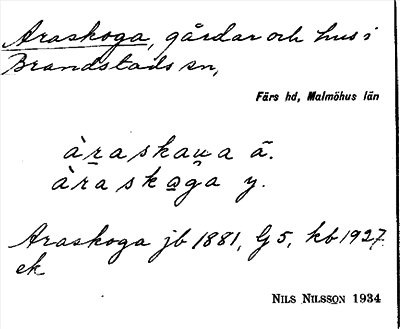 Araskoga, gårdar och hus i
Brandstads sn,
Färs hd, Malmöhus län
àraskau̯a ä.
àraskaga y.
Araskoga jb 1881, G5, kb 1927.
ek
NILS NILSSON 1934